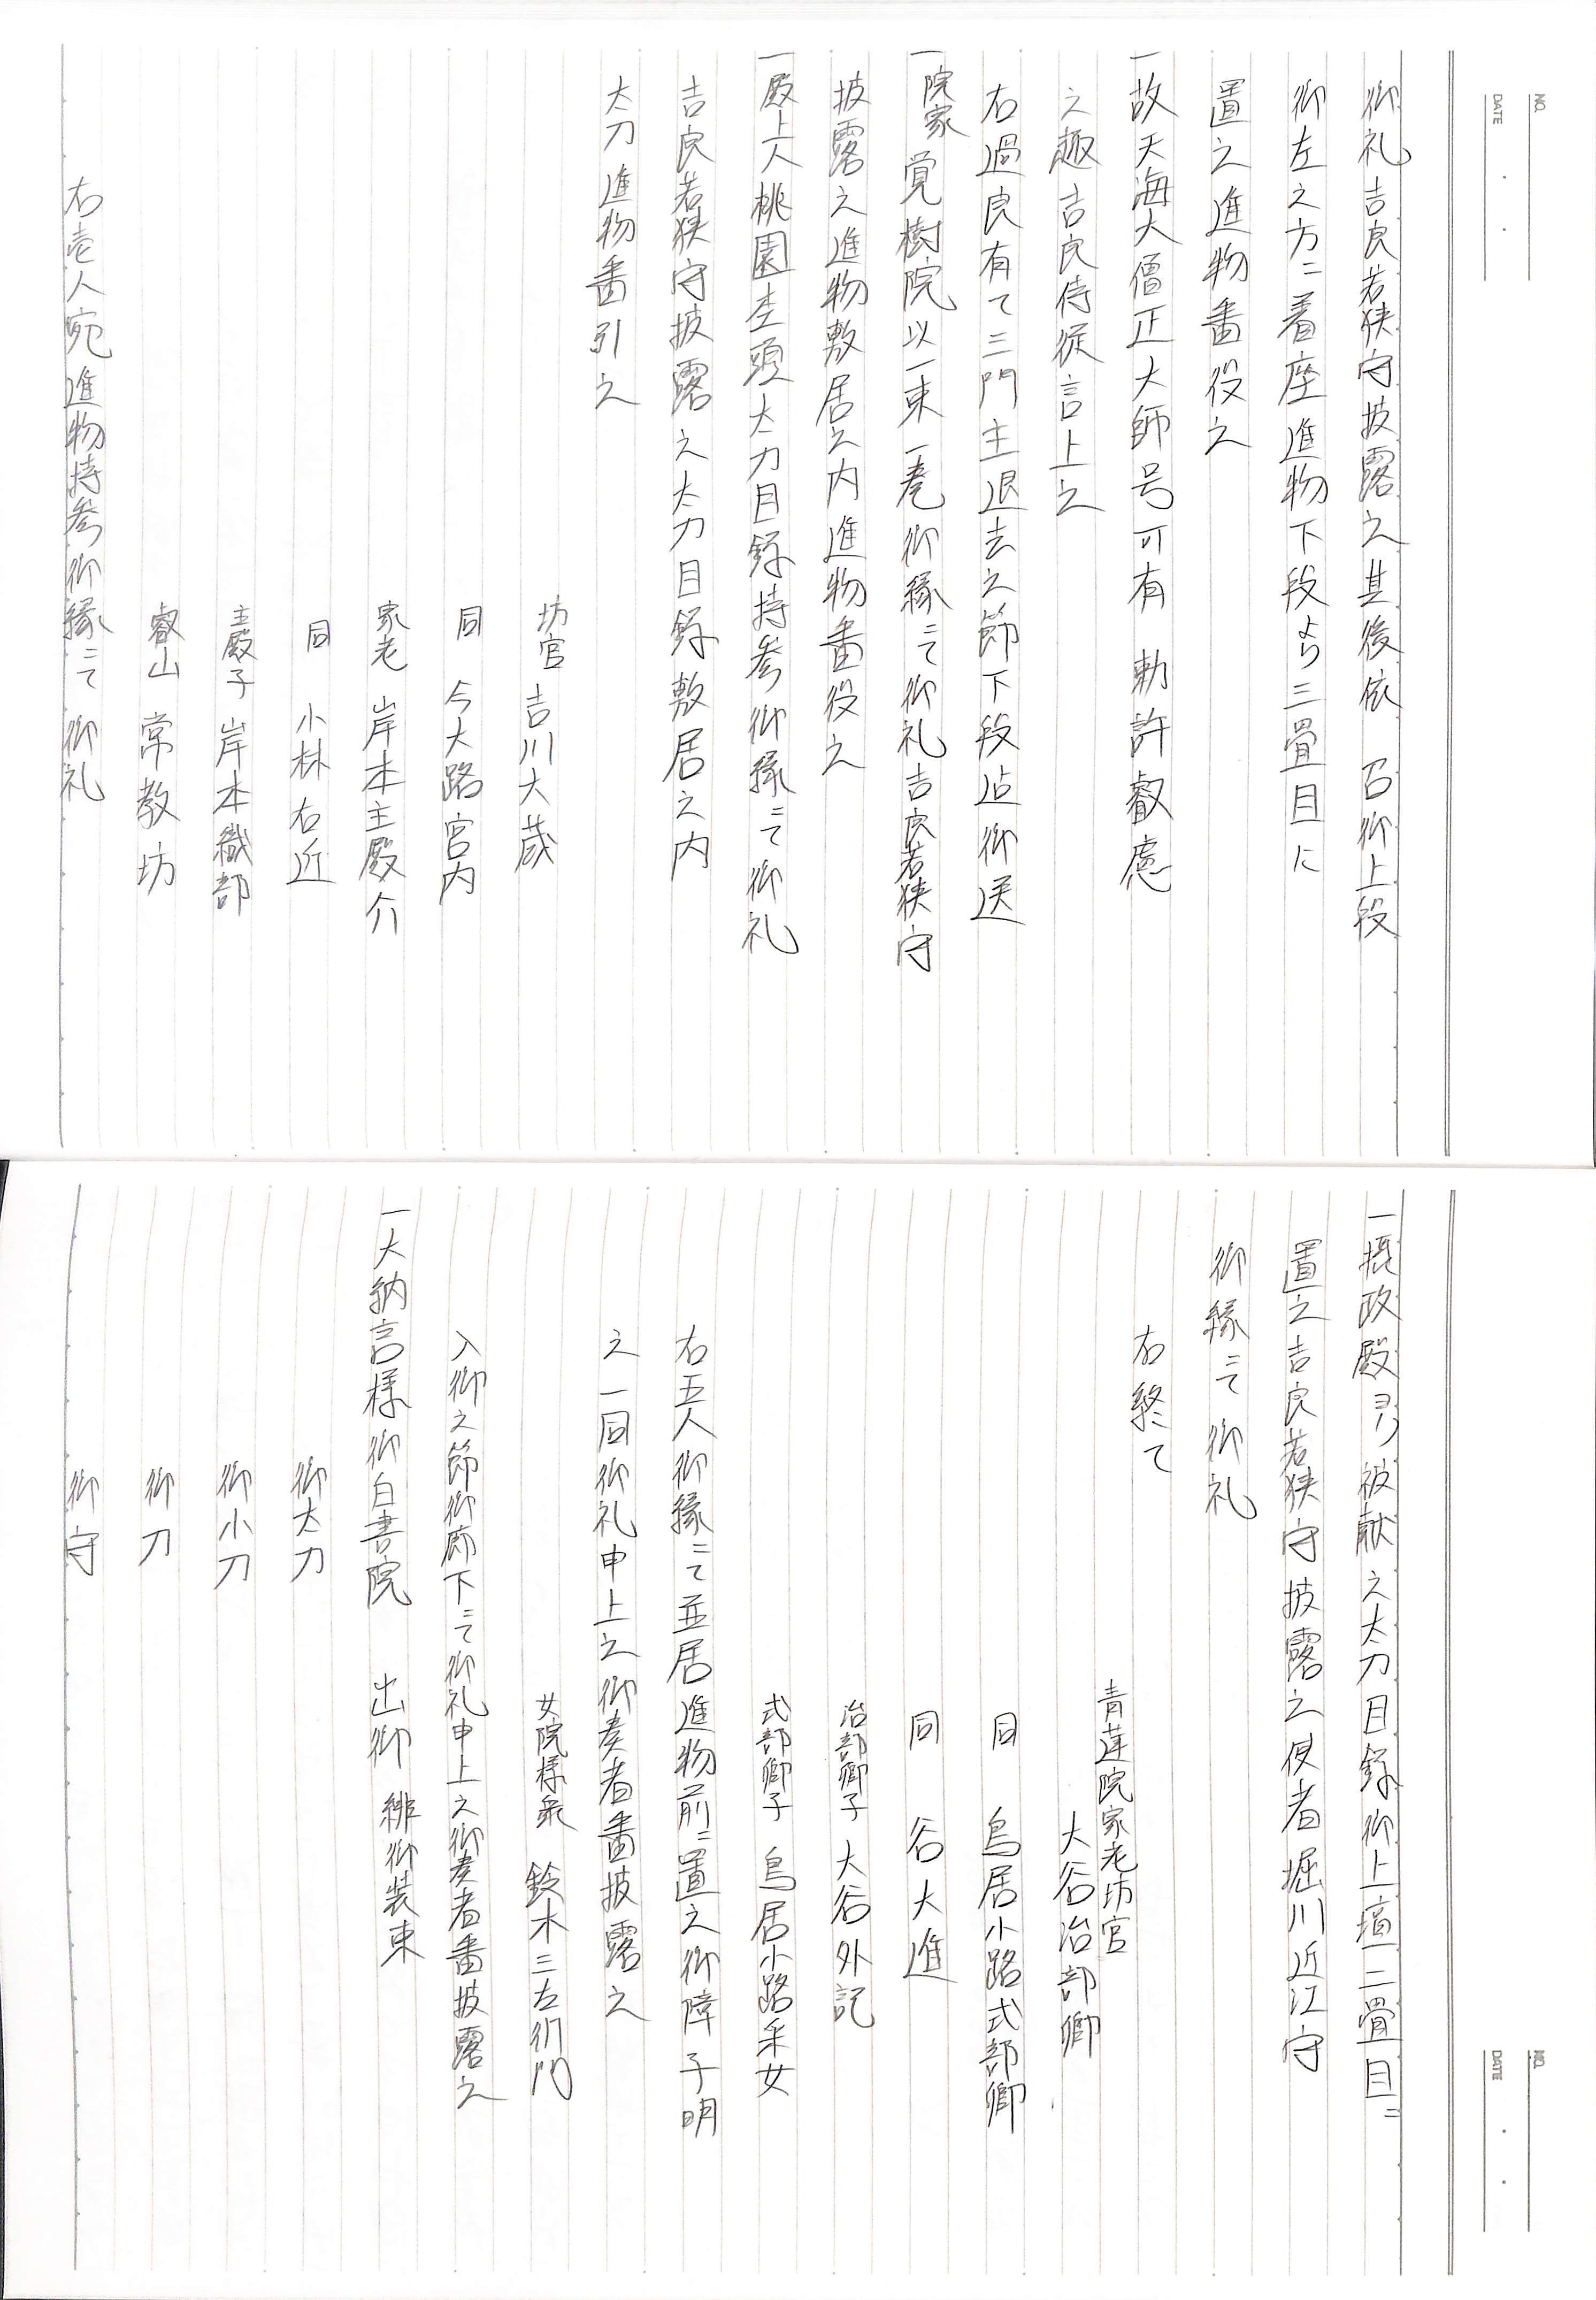 NO.
DATE
御礼吉良若狭守披露之其後依 召御上段
御左之方ニ着座進物下段より三畳目に
置之進物番役之
一故天海大僧正大師号可有 勅許叡慮
之趣吉良侍従言上之
右過良有て三門主退去之節下段迠御送
一院家覚樹院以一束一巻御縁ニて御礼吉良若狭守
披露之進物敷居之内進物番役之
一殿上人桃園杢頭太刀目録持参御縁ニて御礼
吉良若狭守披露之太刀目録敷居之内
太刀進物番引之
坊官 吉川大蔵
同 今大路宮内
家老 岸本主殿介
同 小林右近
主殿子 岸本織部
叡山 常教坊
右壱人宛進物持参御縁ニて御礼
NO.
DATE
一摂政殿ヨリ被献之太刀目録御上壇二畳目ニ
置之吉良若狭守披露之使者堀川近江守
御縁ニて御礼
右終て
青蓮院家老坊官
大谷治部卿
同 鳥居小路式部卿
同 谷大進
治部卿子 大谷外記
式部卿子 鳥居小路采女
右五人御縁ニて並居進物前ニ置之御障子明
之一同御礼申上之御奏者番披露之
女院様衆 鈴木三左衛門
入御之節御廊下ニて御礼申上之御奏者番披露之
一大納言様御白書院 出御 緋御装束
御太刀
御小刀
御刀
御守